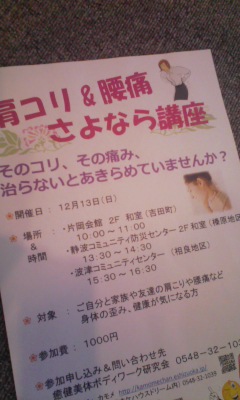 肩コリ & 腰痛
さよなら講座
そのコリ、その痛み、
治らないとあきらめていませんか？
開催日 : 12月13日(日)
場所 : ・片岡会館 2F 和室(吉田町)
& 10:00 ～ 11:00
時間 ・静波コミュニティ防災センター2F 和室(榛原地区)
13:30 ～ 14:30
・波津コミュニティセンター (相良地区)
15:30 ～ 16:30
対象 : ご自分と家族や友達の肩こりや腰痛など
身体の歪み、健康が気になる方
参加費 : 1000円
参加申し込み & 問い合わせ先
癒健美体ボディワーク研究会 0548-32-10